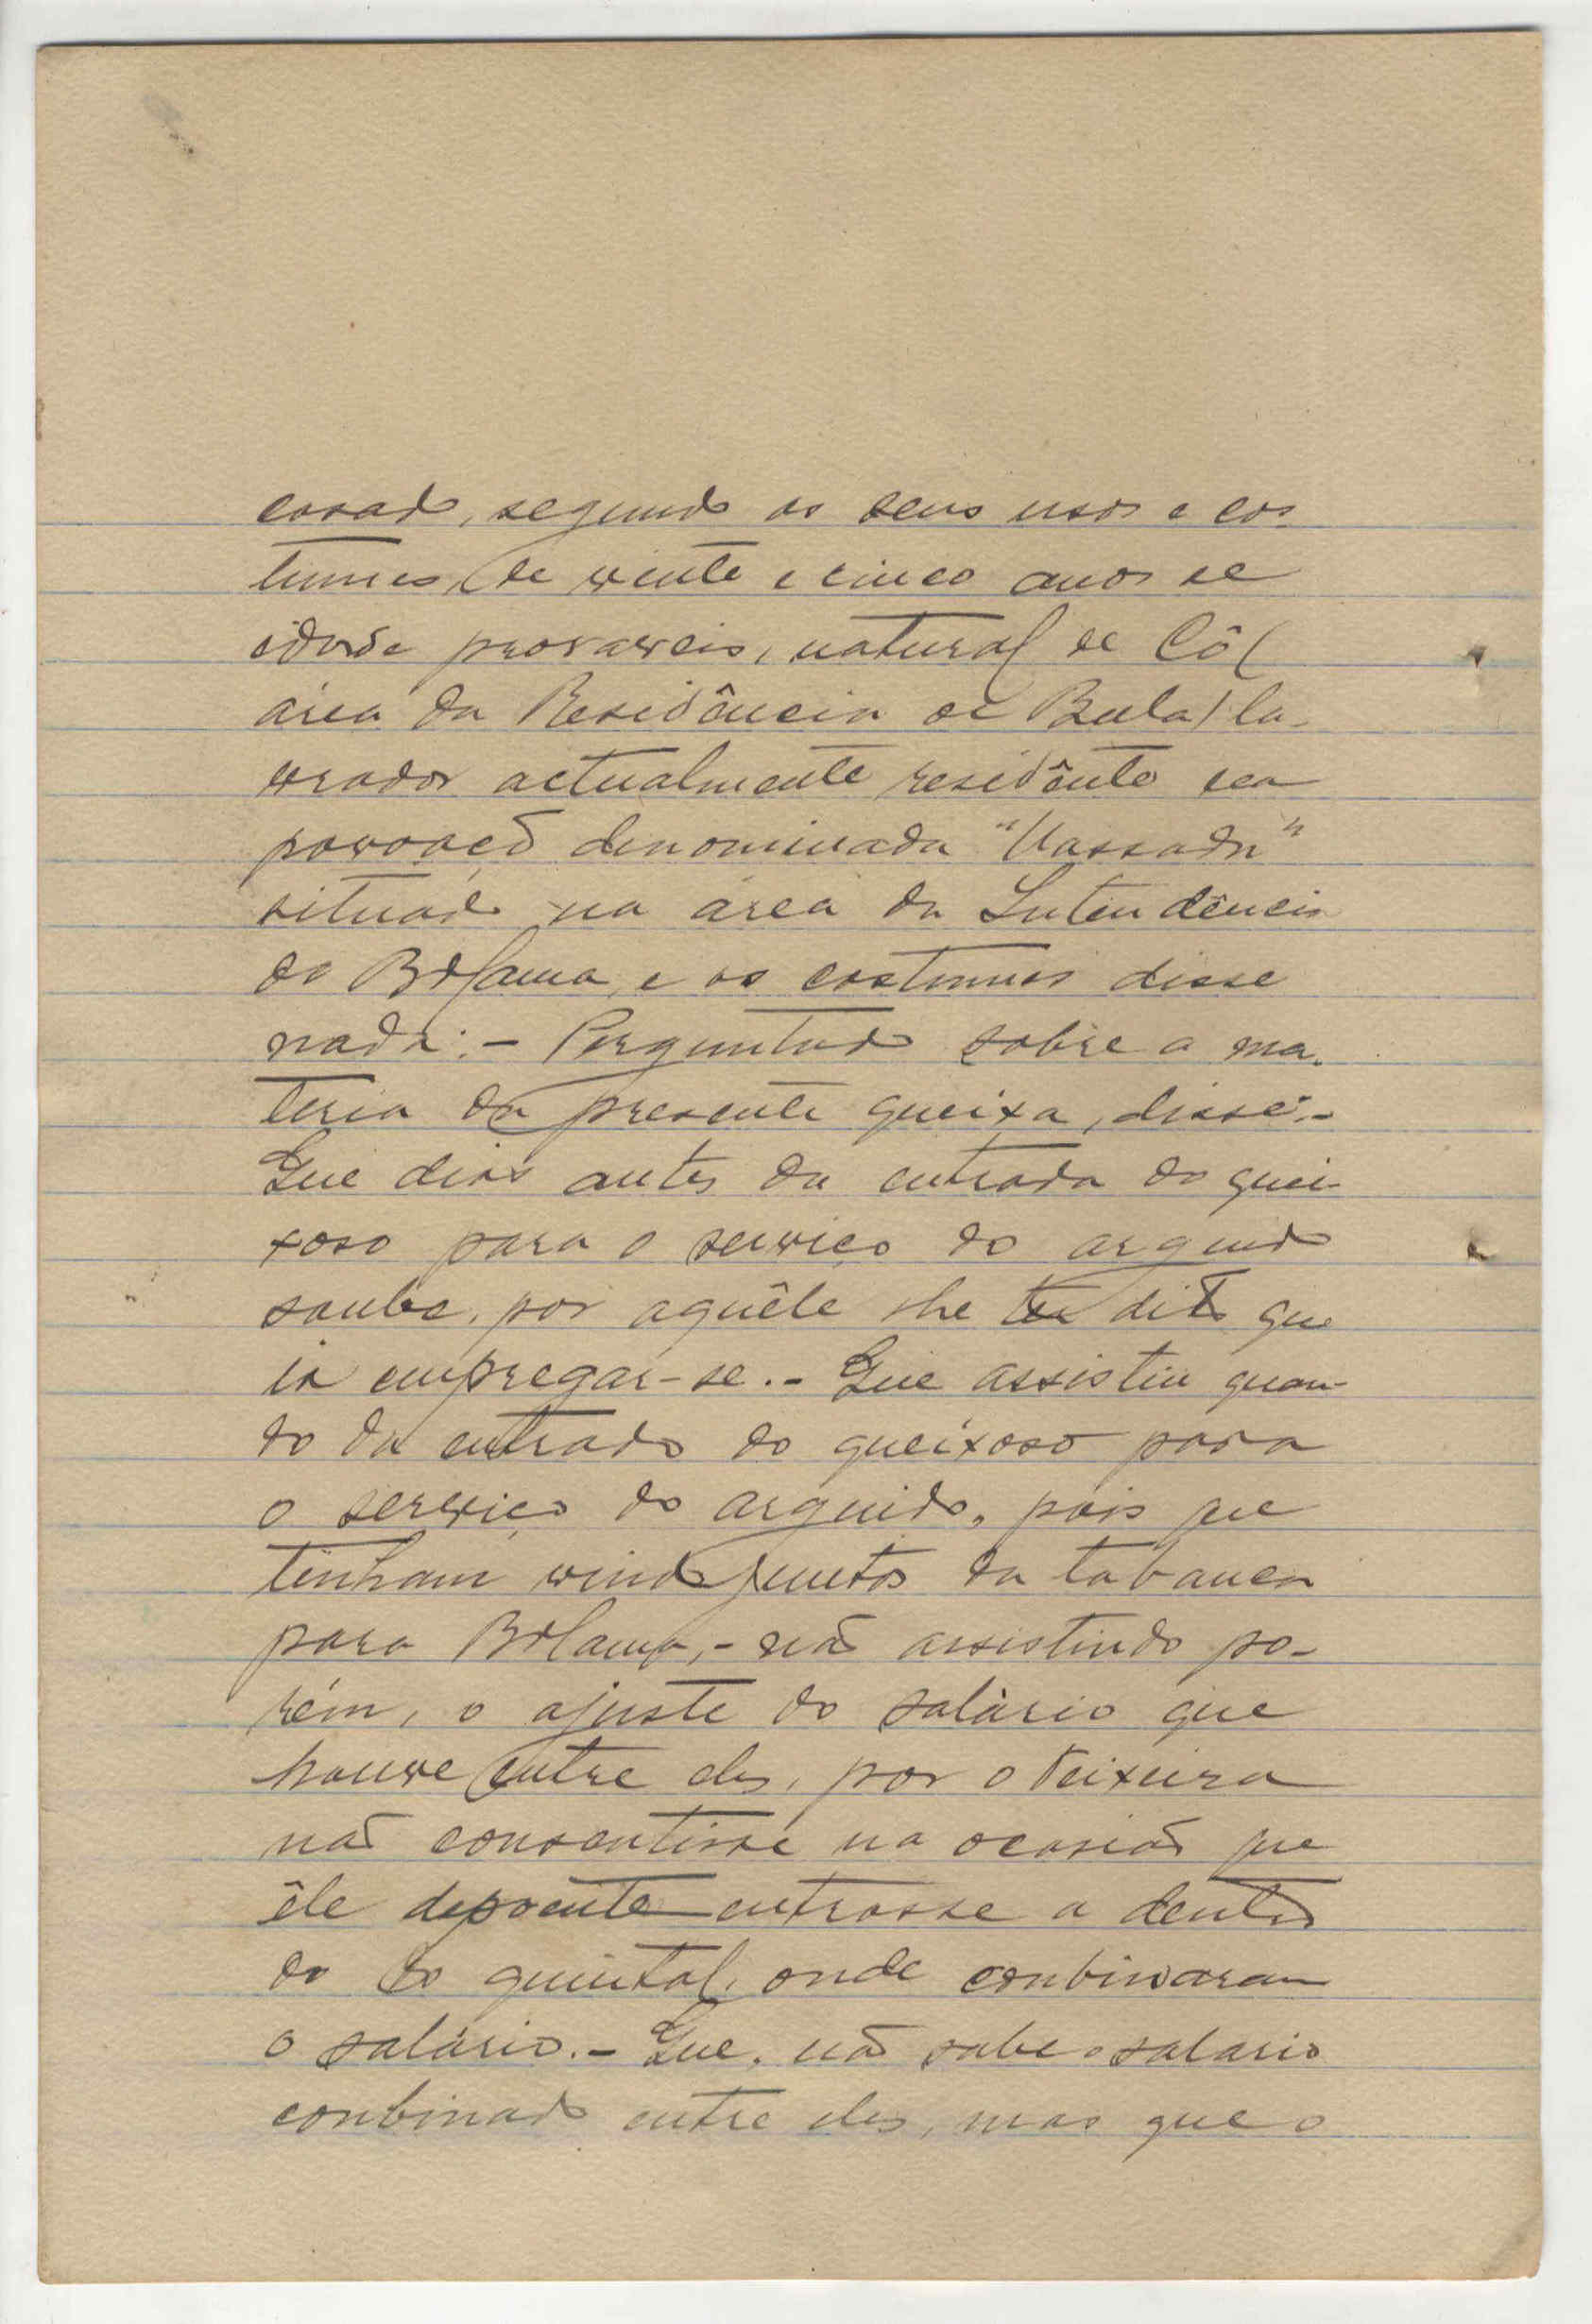 casado, segundo os seus usos e cos-
tumes, de vinte e cinco anos de
idade provaveis, natural de Cô(
área da Residência de Bula) la-
vrador actualmente residênte na
povoação denominada "Vassada"
situado na área da Intendência
de Bolama, e os costumes disse
nada:- Perguntado sobre a ma-
teria da presente queixa, disse:-
Que dias antes da entrada do quei-
xoso para o serviço do arguido
soube, por aquêle lhe ter dito que
ia empregar-se.- Que assistiu quan-
do da entrada do queixoso para
o serviço do arguido, pois que
tinham vindo juntos da tabanca
para Bolama,- não assistindo po-
rém, o ajuste do salário que
houve entre eles, por o Teixeira
não consentisse na ocasião que
êle depoente entrasse a dentro
do do quintal, onde conbinaram
o salário.- Que, não sabe o salario
conbinado entre eles, mas que o